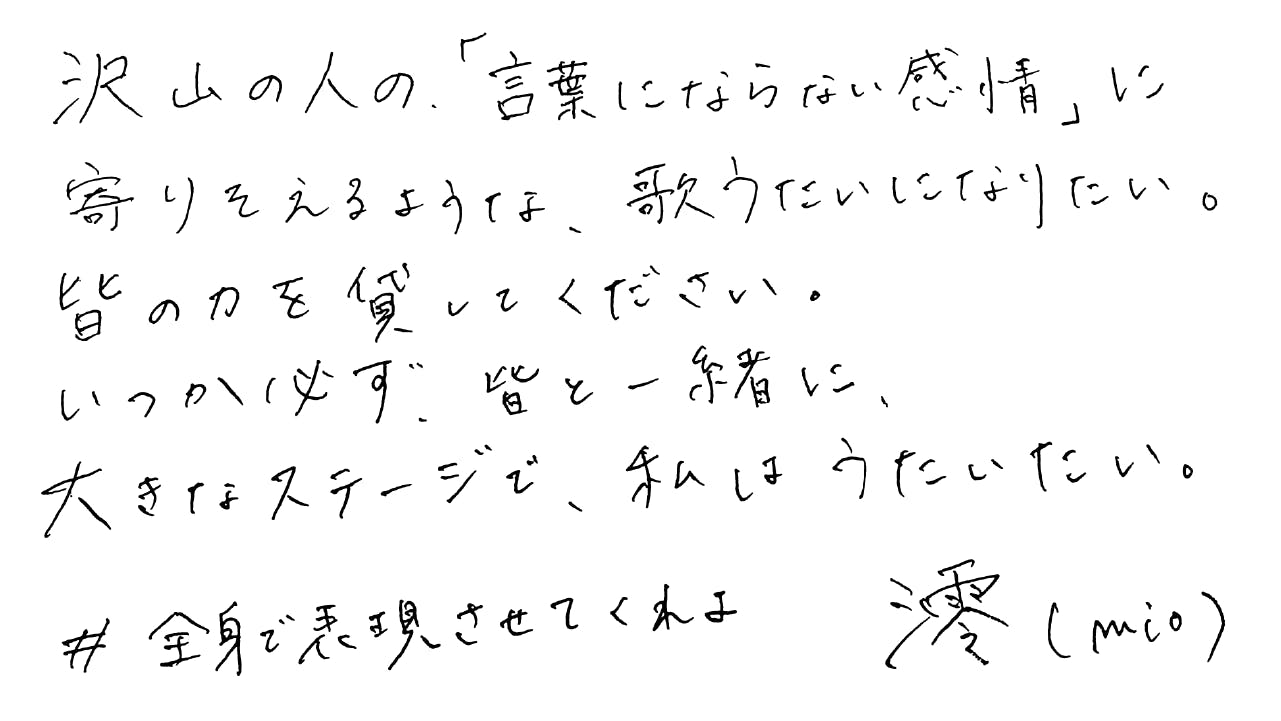 沢山の人の、「言葉にならない感情」に
寄りそえるような、歌うたいになりたい。
皆の力を貸してください。
いつか必ず、皆と一緒に、
大きなステージで、私はうたいたい。
#全身で表現させてくれよ 澪(mio)